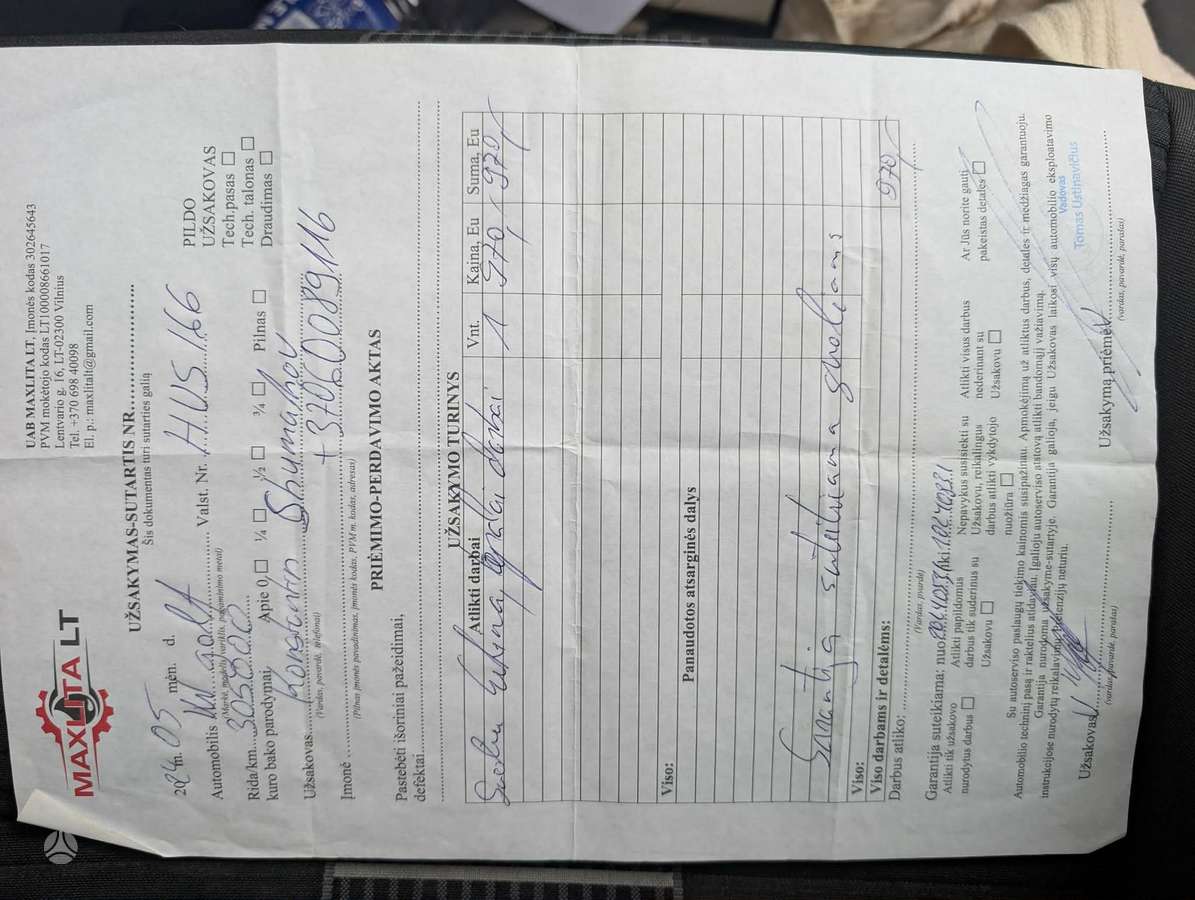 MAXLITA LT
UAB MAXLITA LT, Įmonės kodas 302645643
PVM mokėtojo kodas LT100008661017
Lentvario g. 16, LT-02300 Vilnius
Tel. +370 698 40098
El. p.: maxlitalt@gmail.com
UŽSAKYMAS-SUTARTIS NR
Šis dokumentas turi sutarties galią
2024 m. 05 mėn. d.
PILDO
UŽSAKOVAS
Automobilis Valst. Nr. HUS 166
(Markė, modelis/variklis, pagaminimo metai)
Tech.pasas
Rida/km
Tech. talonas
kuro bako parodymai Apie 0, ¼ ½ ¾ Pilnas
Draudimas
Užsakovas
(Vardas, pavardė, telefonai)
+37060089116
Įmonė
(Pilnas įmonės pavadinimas, įmonės kodas, PVM m. kodas, adresas)
PRIĖMIMO-PERDAVIMO AKTAS
Pastebėti išoriniai pažeidimai,
defektai
UŽSAKYMO TURINYS
Atlikti darbai Vnt. Kaina, Eu Suma, Eu
darbai 1 970,- 970,-
Viso:
Panaudotos atsarginės dalys
Garantija suteikiama
Viso:
Viso darbams ir detalėms: 970,-
Darbus atliko:
(Vardas, pvardė)
Garantija suteikiama: nuo iki
Atlikti tik užsakovo
nurodytus darbus
Atlikti papildomus
darbus tik suderinus su
Užsakovu
Nepavykus susisiekti su
Užsakovu, reikalingus
darbus atlikti vykdytojo
nuožiūra
Atlikti visus darbus
nederinant su
Užsakovu
Ar Jūs norite gauti
pakeistas detales
Su autoserviso paslaugų tiekimo kainomis susipažinau. Apmokėjimą už atliktus darbus, detales ir medžiagas garantuoju.
Automobilio techninį pasą ir raktelius atidaviau. Įgalioju autoserviso atstovą atlikti bandomąjį važiavimą.
Garantija nurodoma užsakyme-sutartyje. Garantija galioja, jeigu Užsakovas laikosi visų automobilio eksploatavimo
instrukcijose nurodytų reikalavimų. Pretenzijų neturiu.
Vadovas
Tomas Ustinavičius
Užsakovas Užsakymą priėmė
(vardas, pavardė, parašas) (vardas, pavardė, parašas)